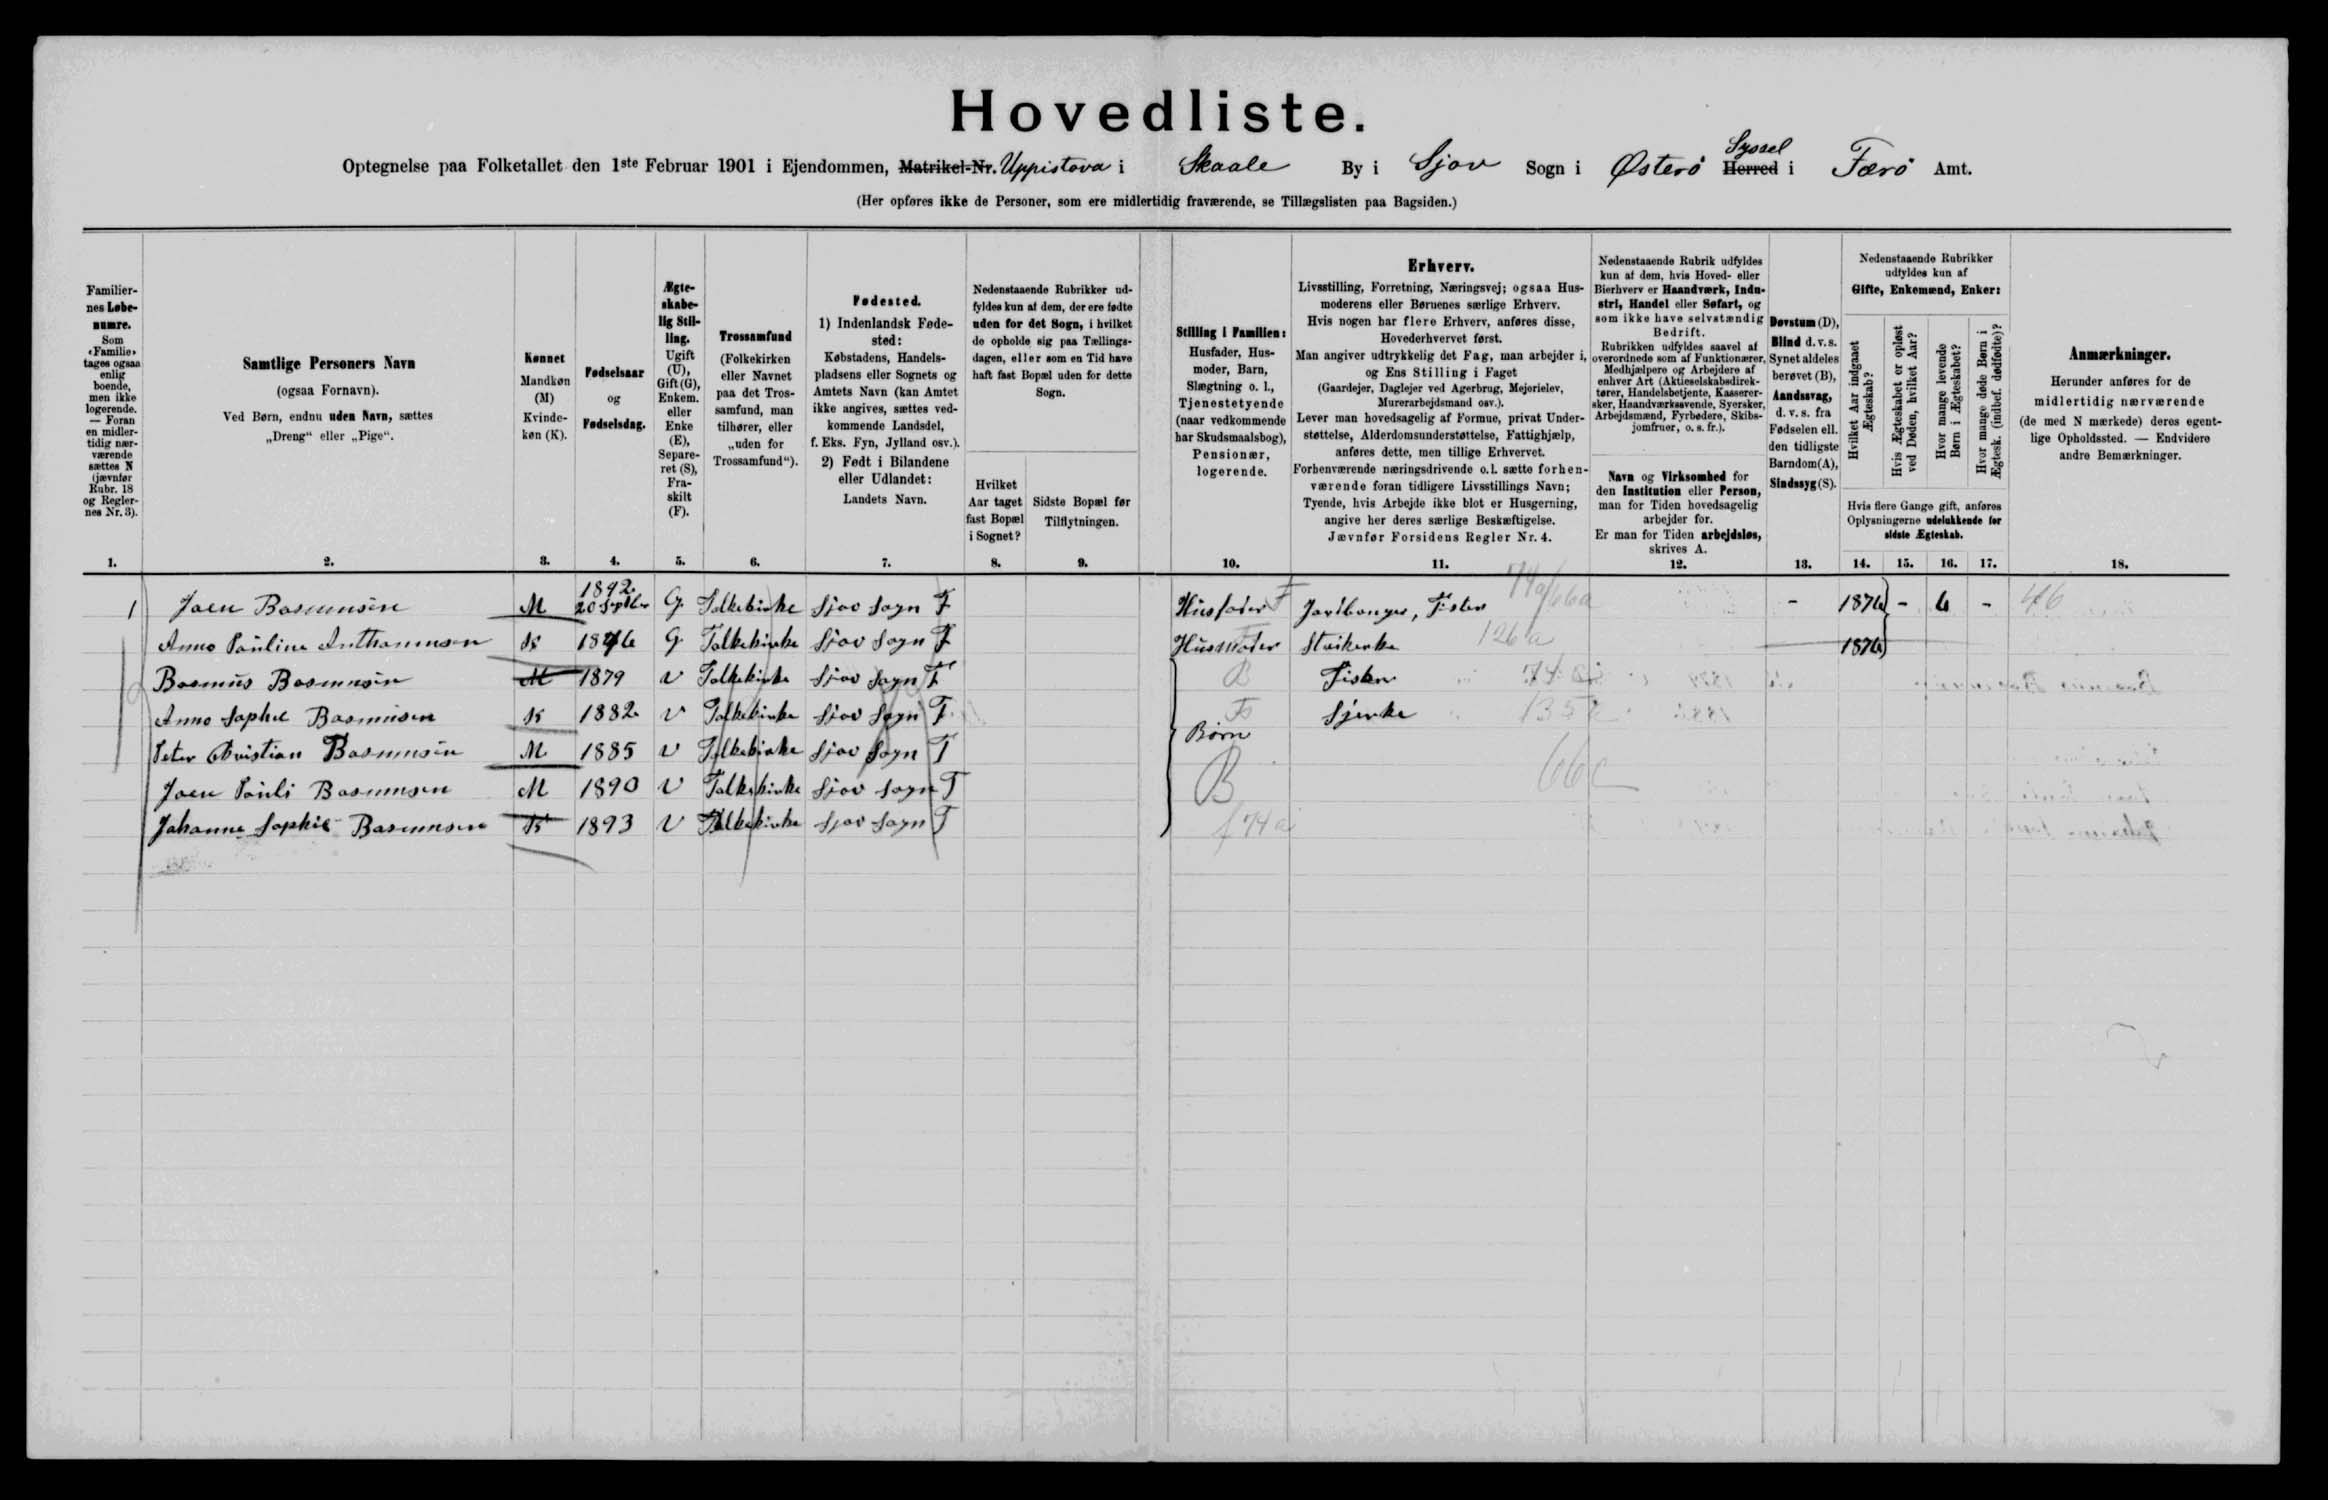 Hovedliste.
Optegnelse paa Folketallet den 1ste Februar 1901 i Ejendommen, Matrikel-Nr. Uppistova i Skaale By i Sjov Sogn i Østerö Herred Syssel i Færö Amt.
(Her opføres ikke de Personer, som ere midlertidig fraværende, se Tillægslisten paa Bagsiden.)
Familier-
nes Løbe-
numre.
Som
«Familie»
tages ogsaa
enlig
boende,
men ikke
logerende.
— Foran
en midler-
tidig nær-
værende
sættes N
(jævnfør
Rubr. 18
og Regler-
nes Nr. 3).
1.
Samtlige Personers Navn
(ogsaa Fornavn).
Ved Børn, endnu uden Navn, sættes
„Dreng“ eller „Pige“.
2.
Kønnet
Mandkøn
(M)
Kvinde-
køn (K).
3.
Fødselsaar
og
Fødselsdag.
4.
Ægte-
skabe-
lig Stil-
ling.
Ugift
(U),
Gift (G),
Enkem.
eller
Enke
(E),
Separe-
ret (S),
Fra-
skilt
(F).
5.
Trossamfund
(Folkekirken
eller Navnet
paa det Tros-
samfund, man
tilhører, eller
„uden for
Trossamfund“).
6.
Fødested.
1) Indenlandsk Føde-
sted:
Købstadens, Handels-
pladsens eller Sognets og
Amtets Navn (kan Amtet
ikke angives, sættes ved-
kommende Landsdel,
f. Eks. Fyn, Jylland osv.).
2) Født i Bilandene
eller Udlandet:
Landets Navn.
7.
Nedenstaaende Rubrikker ud-
fyldes kun af dem, der ere fødte
uden for det Sogn, i hvilket
de opholde sig paa Tællings-
dagen, eller som en Tid have
haft fast Bopæl uden for dette
Sogn.
Hvilket
Aar taget
fast Bopæl
i Sognet?
8.
Sidste Bopæl før
Tilflytningen.
9.
Stilling i Familien:
Husfader, Hus-
moder, Barn,
Slægtning o. l.,
Tjenestetyende
(naar vedkommende
har Skudsmaalsbog),
Pensionær,
logerende.
10.
Erhverv.
Livsstilling, Forretning, Næringsvej; ogsaa Hus-
moderens eller Børnenes særlige Erhverv.
Hvis nogen har flere Erhverv, anføres disse,
Hovederhvervet først.
Man angiver udtrykkelig det Fag, man arbejder i,
og Ens Stilling i Faget
(Gaardejer, Daglejer ved Agerbrug, Mejerielev,
Murerarbejdsmand osv.).
Lever man hovedsagelig af Formue, privat Under-
støttelse, Alderdomsunderstøttelse, Fattighjælp,
anføres dette, men tillige Erhvervet.
Forhenværende næringsdrivende o. l. sætte forhen-
værende foran tidligere Livsstillings Navn;
Tyende, hvis Arbejde ikke blot er Husgerning,
angive her deres særlige Beskæftigelse.
Jævnfør Forsidens Regler Nr. 4.
11.
Nedenstaaende Rubrik udfyldes
kun af dem, hvis Hoved- eller
Bierhverv er Haandværk, Indu-
stri, Handel eller Søfart, og
som ikke have selvstændig
Bedrift.
Rubrikken udfyldes saavel af
overordnede som af Funktionærer,
Medhjælpere og Arbejdere af
enhver Art (Aktieselskabsdirek-
tører, Handelsbetjente, Kasserer-
sker, Haandværkssvende, Syersker,
Arbejdsmænd, Fyrbødere, Skibs-
jomfruer, o. s. fr.).
Navn og Virksomhed for
den Institution eller Person,
man for Tiden hovedsagelig
arbejder for.
Er man for Tiden arbejdsløs,
skrives A.
12.
Døvstum (D),
Blind d. v. s.
Synet aldeles
berøvet (B),
Aandssvag,
d. v. s. fra
Fødselen ell.
den tidligste
Barndom (A),
Sindssyg (S).
13.
Nedenstaaende Rubrikker
udfyldes kun af
Gifte, Enkemænd, Enker:
Hvilket Aar indgaaet
Ægteskab?
Hvis Ægteskabet er opløst
ved Døden, hvilket Aar?
Hvor mange levende
Børn i Ægteskabet?
Hvor mange døde Børn i
Ægtesk. (indbef. dødfødte)?
Hvis flere Gange gift, anføres
Oplysningerne udelukkende for
sidste Ægteskab.
14. 15. 16. 17.
Anmærkninger.
Herunder anføres for de
midlertidig nærværende
(de med N mærkede) deres egent-
lige Opholdssted. — Endvidere
andre Bemærkninger.
18.
1 Joen Rasmusen M 1842 20 Septber G Folkekirke Sjov Sogn F Husfader F Jordbruger, Fisker 74a/66a - 1876 - 6 - 46
Anna Pauline Anthoniusen K 1846 G Folkekirke Sjov Sogn F Husmoder Strikerske 126a 1876
Rasmus Rasmusen M 1879 U Folkekirke Sjov Sogn F B Fisker
Anna Sophie Rasmusen K 1882 U Folkekirke Sjov Sogn F Syerske
Peter Christian Rasmusen M 1885 U Folkekirke Sjov Sogn F Børn
Joen Pauli Rasmusen M 1890 U Folkekirke Sjov Sogn F B 66c
Johanne Sophie Rasmusen K 1893 U Folkekirke Sjov Sogn F 74a